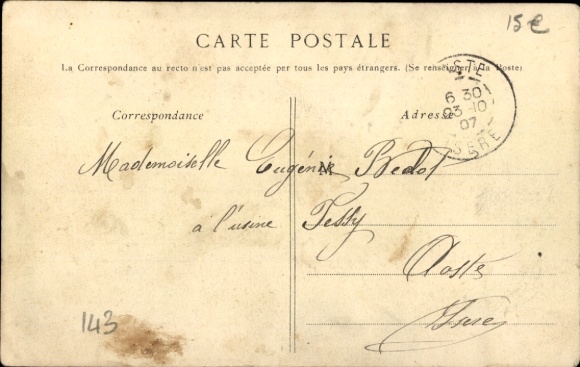 15€
CARTE POSTALE
La Correspondance au recto n'est pas acceptée par tous les pays étrangers. (Se renseigner à la Poste)
STE
6 30
23 -10
07
ISÈRE
Correspondance
Adresse
M
Mademoiselle Eugénie Bedot
à l'usine Tessy
Aoste
Isère
143